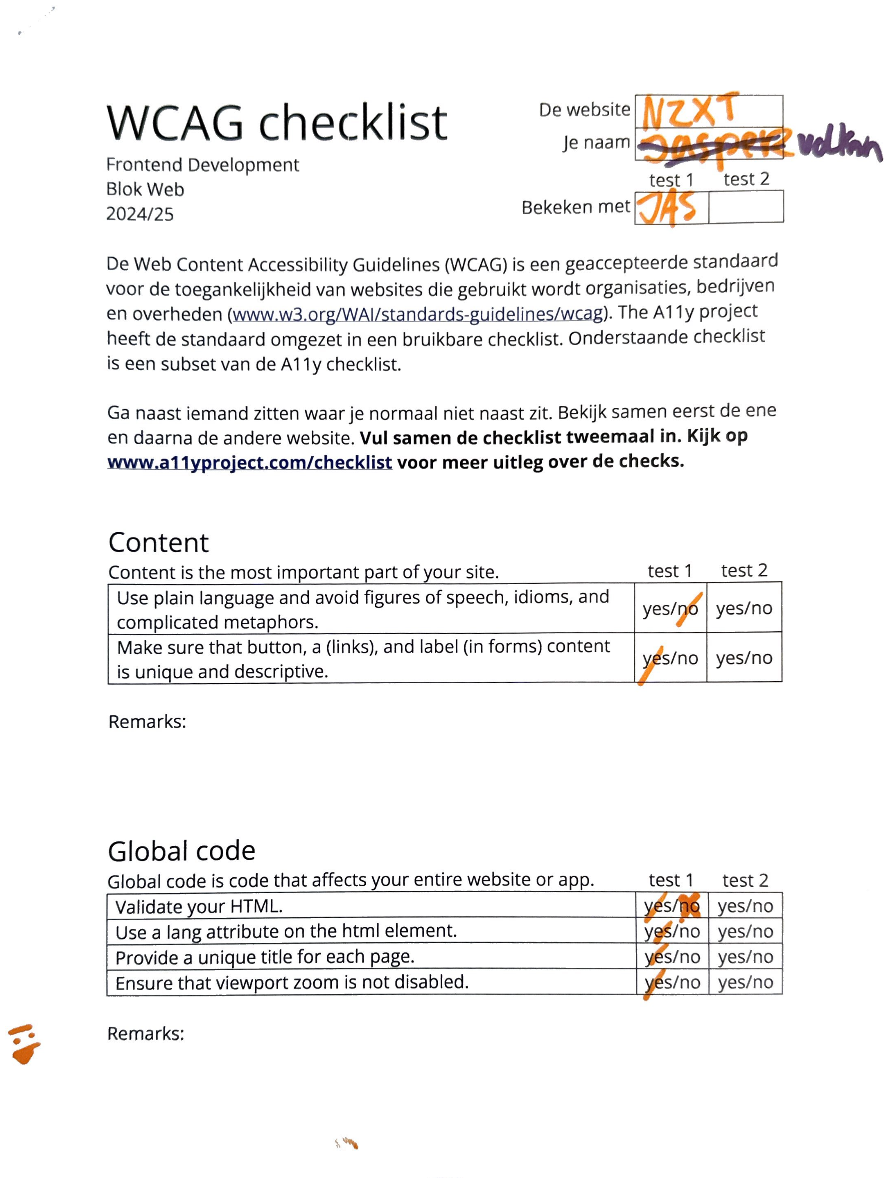 WCAG checklist
Frontend Development
Blok Web
2024/25
De website NZXT
Je naam Jasper
test 1 test 2
Bekeken met JAS
De Web Content Accessibility Guidelines (WCAG) is een geaccepteerde standaard
voor de toegankelijkheid van websites die gebruikt wordt organisaties, bedrijven
en overheden (www.w3.org/WAI/standards-guidelines/wcag). The A11y project
heeft de standaard omgezet in een bruikbare checklist. Onderstaande checklist
is een subset van de A11y checklist.
Ga naast iemand zitten waar je normaal niet naast zit. Bekijk samen eerst de ene
en daarna de andere website. Vul samen de checklist tweemaal in. Kijk op
www.a11yproject.com/checklist voor meer uitleg over de checks.
Content
Content is the most important part of your site. test 1 test 2
Use plain language and avoid figures of speech, idioms, and
complicated metaphors. yes/no yes/no
Make sure that button, a (links), and label (in forms) content
is unique and descriptive. yes/no yes/no
Remarks:
Global code
Global code is code that affects your entire website or app. test 1 test 2
Validate your HTML. yes/no yes/no
Use a lang attribute on the html element. yes/no yes/no
Provide a unique title for each page. yes/no yes/no
Ensure that viewport zoom is not disabled. yes/no yes/no
Remarks: